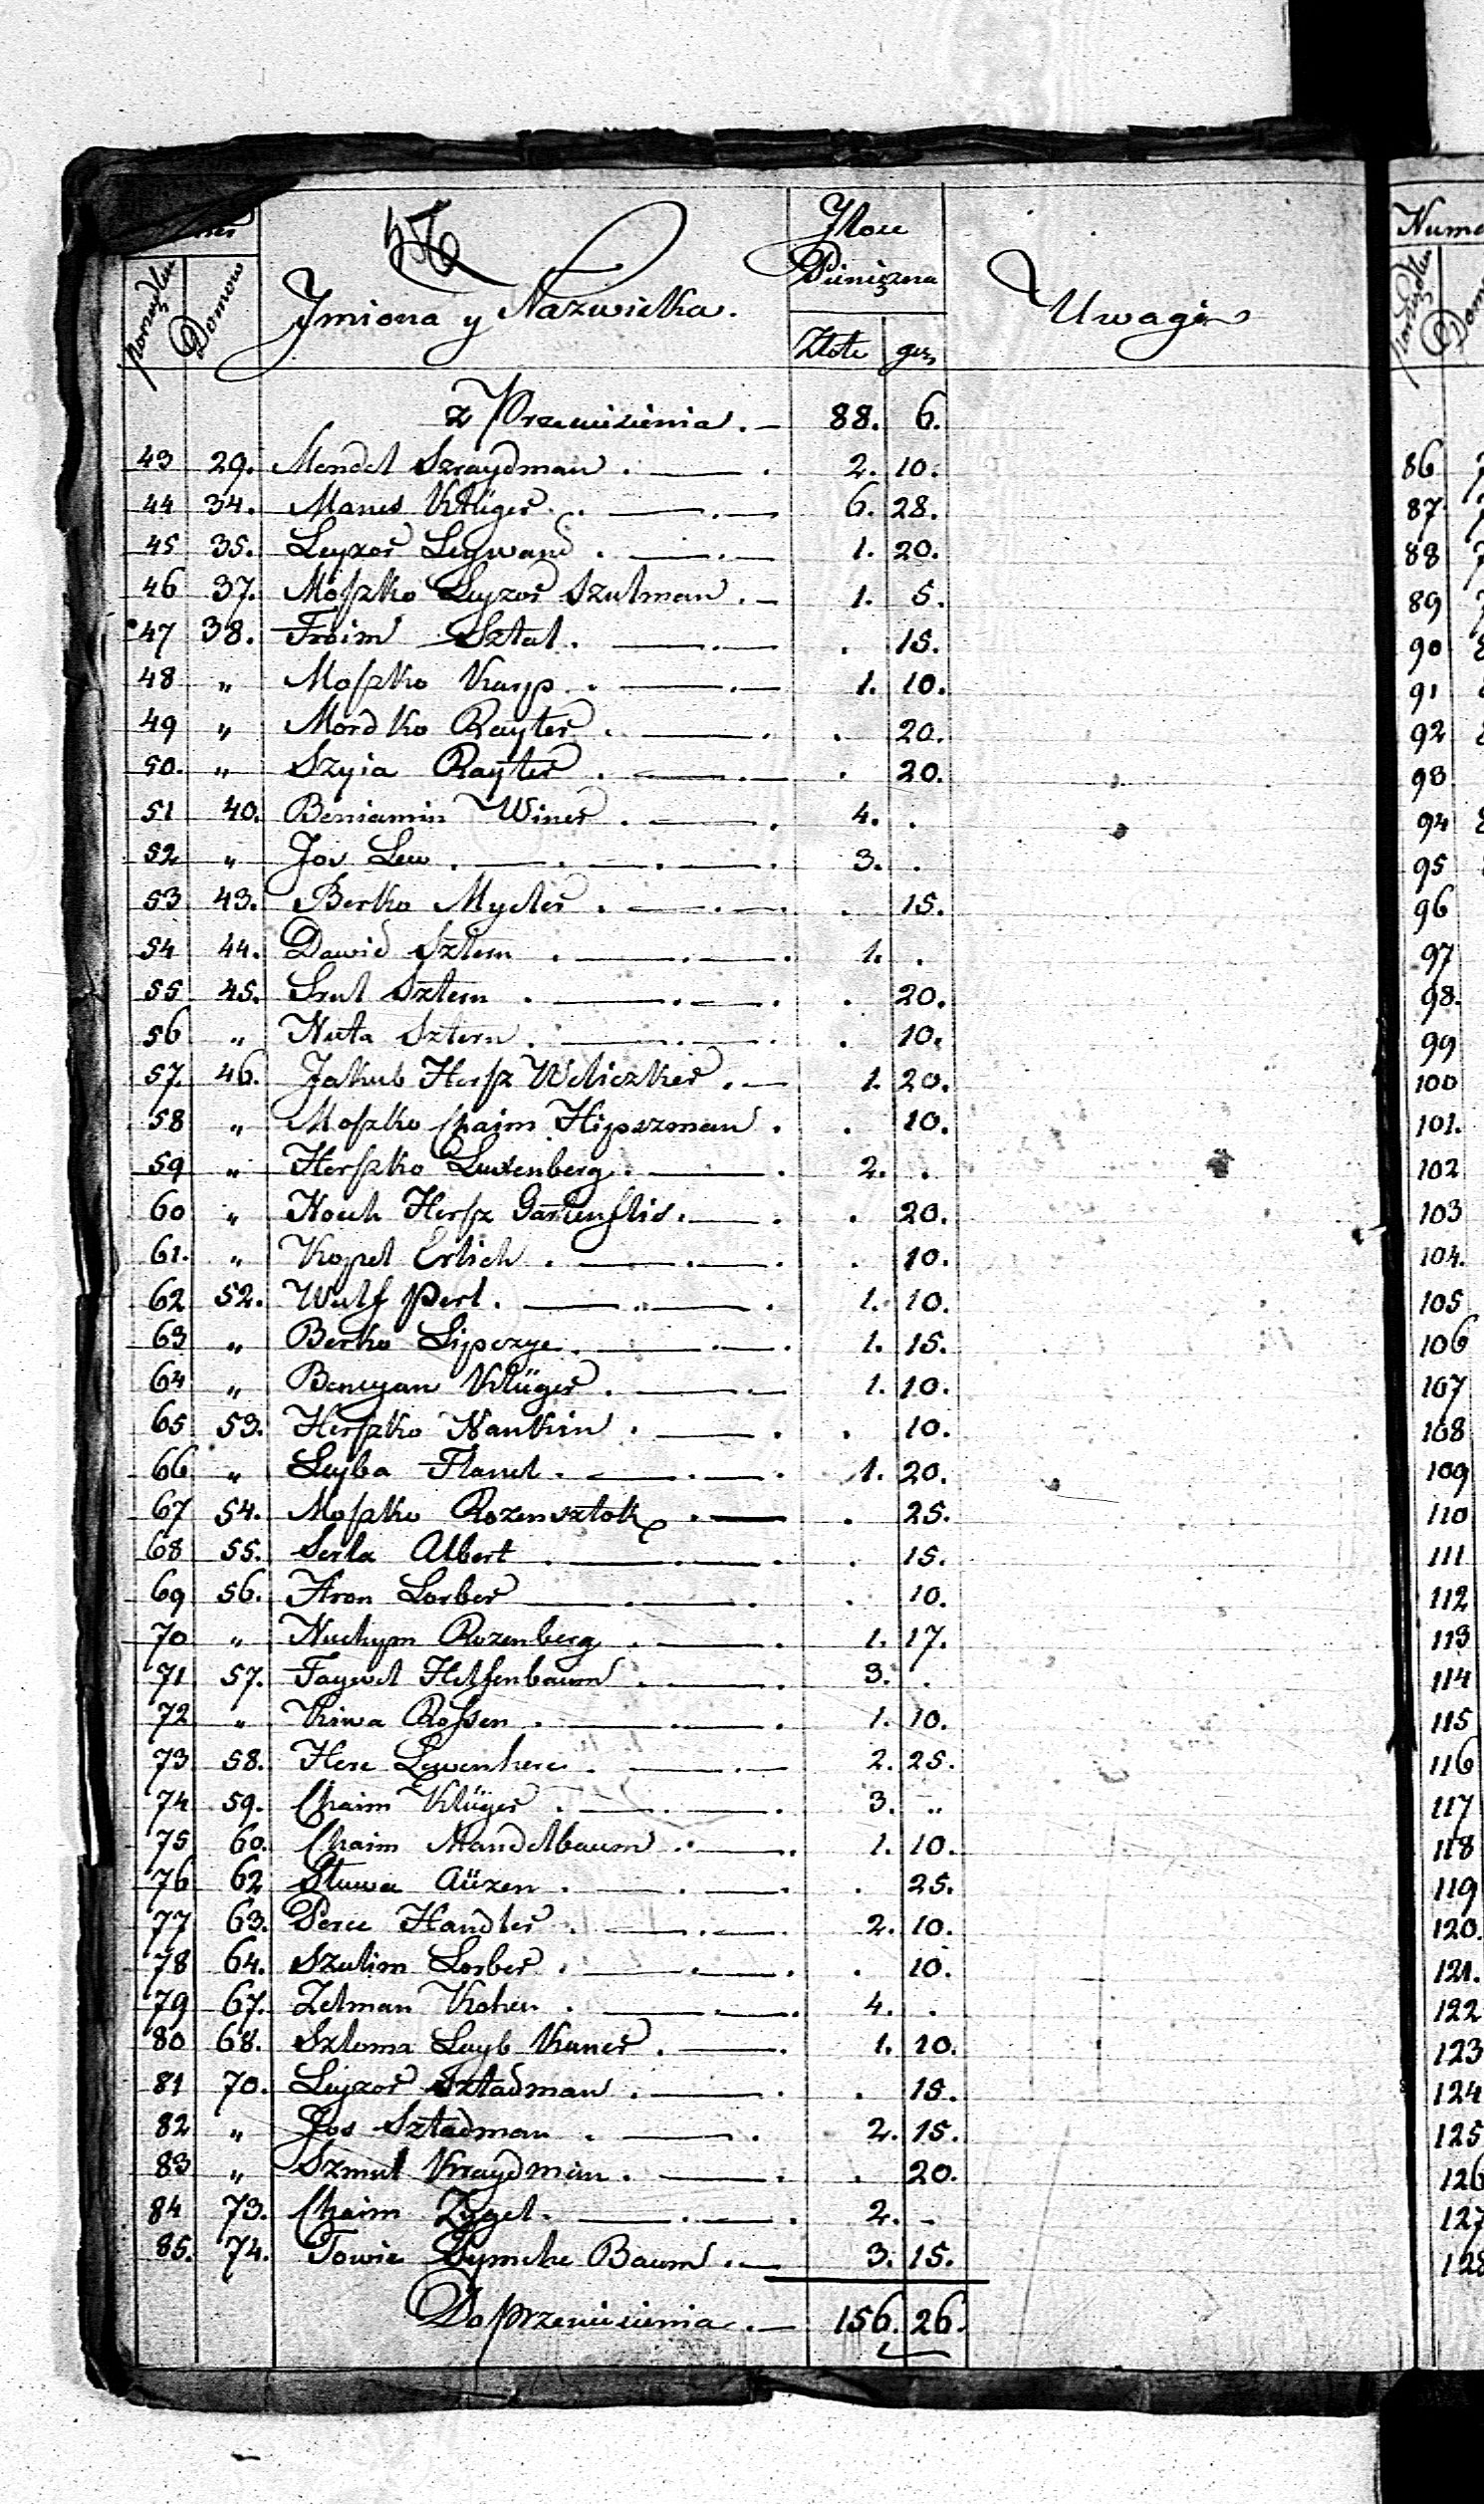 576
Numer
porządku Domow
Jmiona y Nazwiska.
Jlosc Pieniężna
Złote gr.
Uwagi
z Przeniesienia. 88. 6.
43 29. Mendel Szraydman 2. 10.
44 34. Manes Klüger 6. 28.
45 35. Leyzor Leywand 1. 20.
46 37. Moszko Leyzor Szulman 1. 5.
47 38. Froim Sztal . 15.
48 " Moszko Karp 1. 10.
49 " Mordko Rayter . 20.
50. " Szyia Rayter . 20.
51 40. Beniamin Winer 4. .
52 " Jos Lew 3. .
53 43. Berko Mycler . 15.
54 44. Dawid Sztern 1. .
55 45. Srul Sztern . 20.
56 " Nuta Sztern . 10.
57. 46. Jakub Hersz Weliczker 1. 20.
58 " Moszko Chaim Hipszman . 10.
59 " Herszko Luxenberg 2. .
60 " Noech Hersz Gartenflis . 20.
61. " Kopel Erlich . 10.
62 52. Wulf Perl 1. 10.
63 " Berko Lipszyc 1. 15.
64 " Beneyan Klüger 1. 10.
65 53. Herszko Nankin . 10.
66 " Leyba Flanel 1. 20.
67 54. Moszko Rozensztok . 25.
68 55. Serla Albert . 15.
69 56. Aron Lorber . 10.
70 " Nuchym Rozenberg 1. 17.
71 57. Faywel Helfenbaum 3. .
72 " Kiwa Rossen 1. 10.
73 58. Herc Lewenherc 2. 25.
74 59. Chaim Klüger 3. "
75 60. Chaim Mandelbaum 1. 10.
76 62 Sluwa Aüzen . 25.
77 63. Perec Handler 2. 10.
78 64. Szulim Lorber . 10.
79 67. Zelman Kohen 4. .
80 68. Szloma Leyb Kaner 1. 10.
81 70. Leyzor Sztadman . 15.
82 " Jos Sztadman 2. 15.
83 " Szmul Kraydman . 20.
84 73. Chaim Zygel 2. -
85. 74. Towie Symche Baum 3. 15.
Do przeniesienia 156. 26.
Nume
porządku Dom
86
87
88
89
90
91
92
93
94
95
96
97
98.
99
100
101.
102
103
104.
105
106
107
108
109
110
111
112
113
114
115
116
117
118
119
120.
121.
122
123
124
125
126
127
128